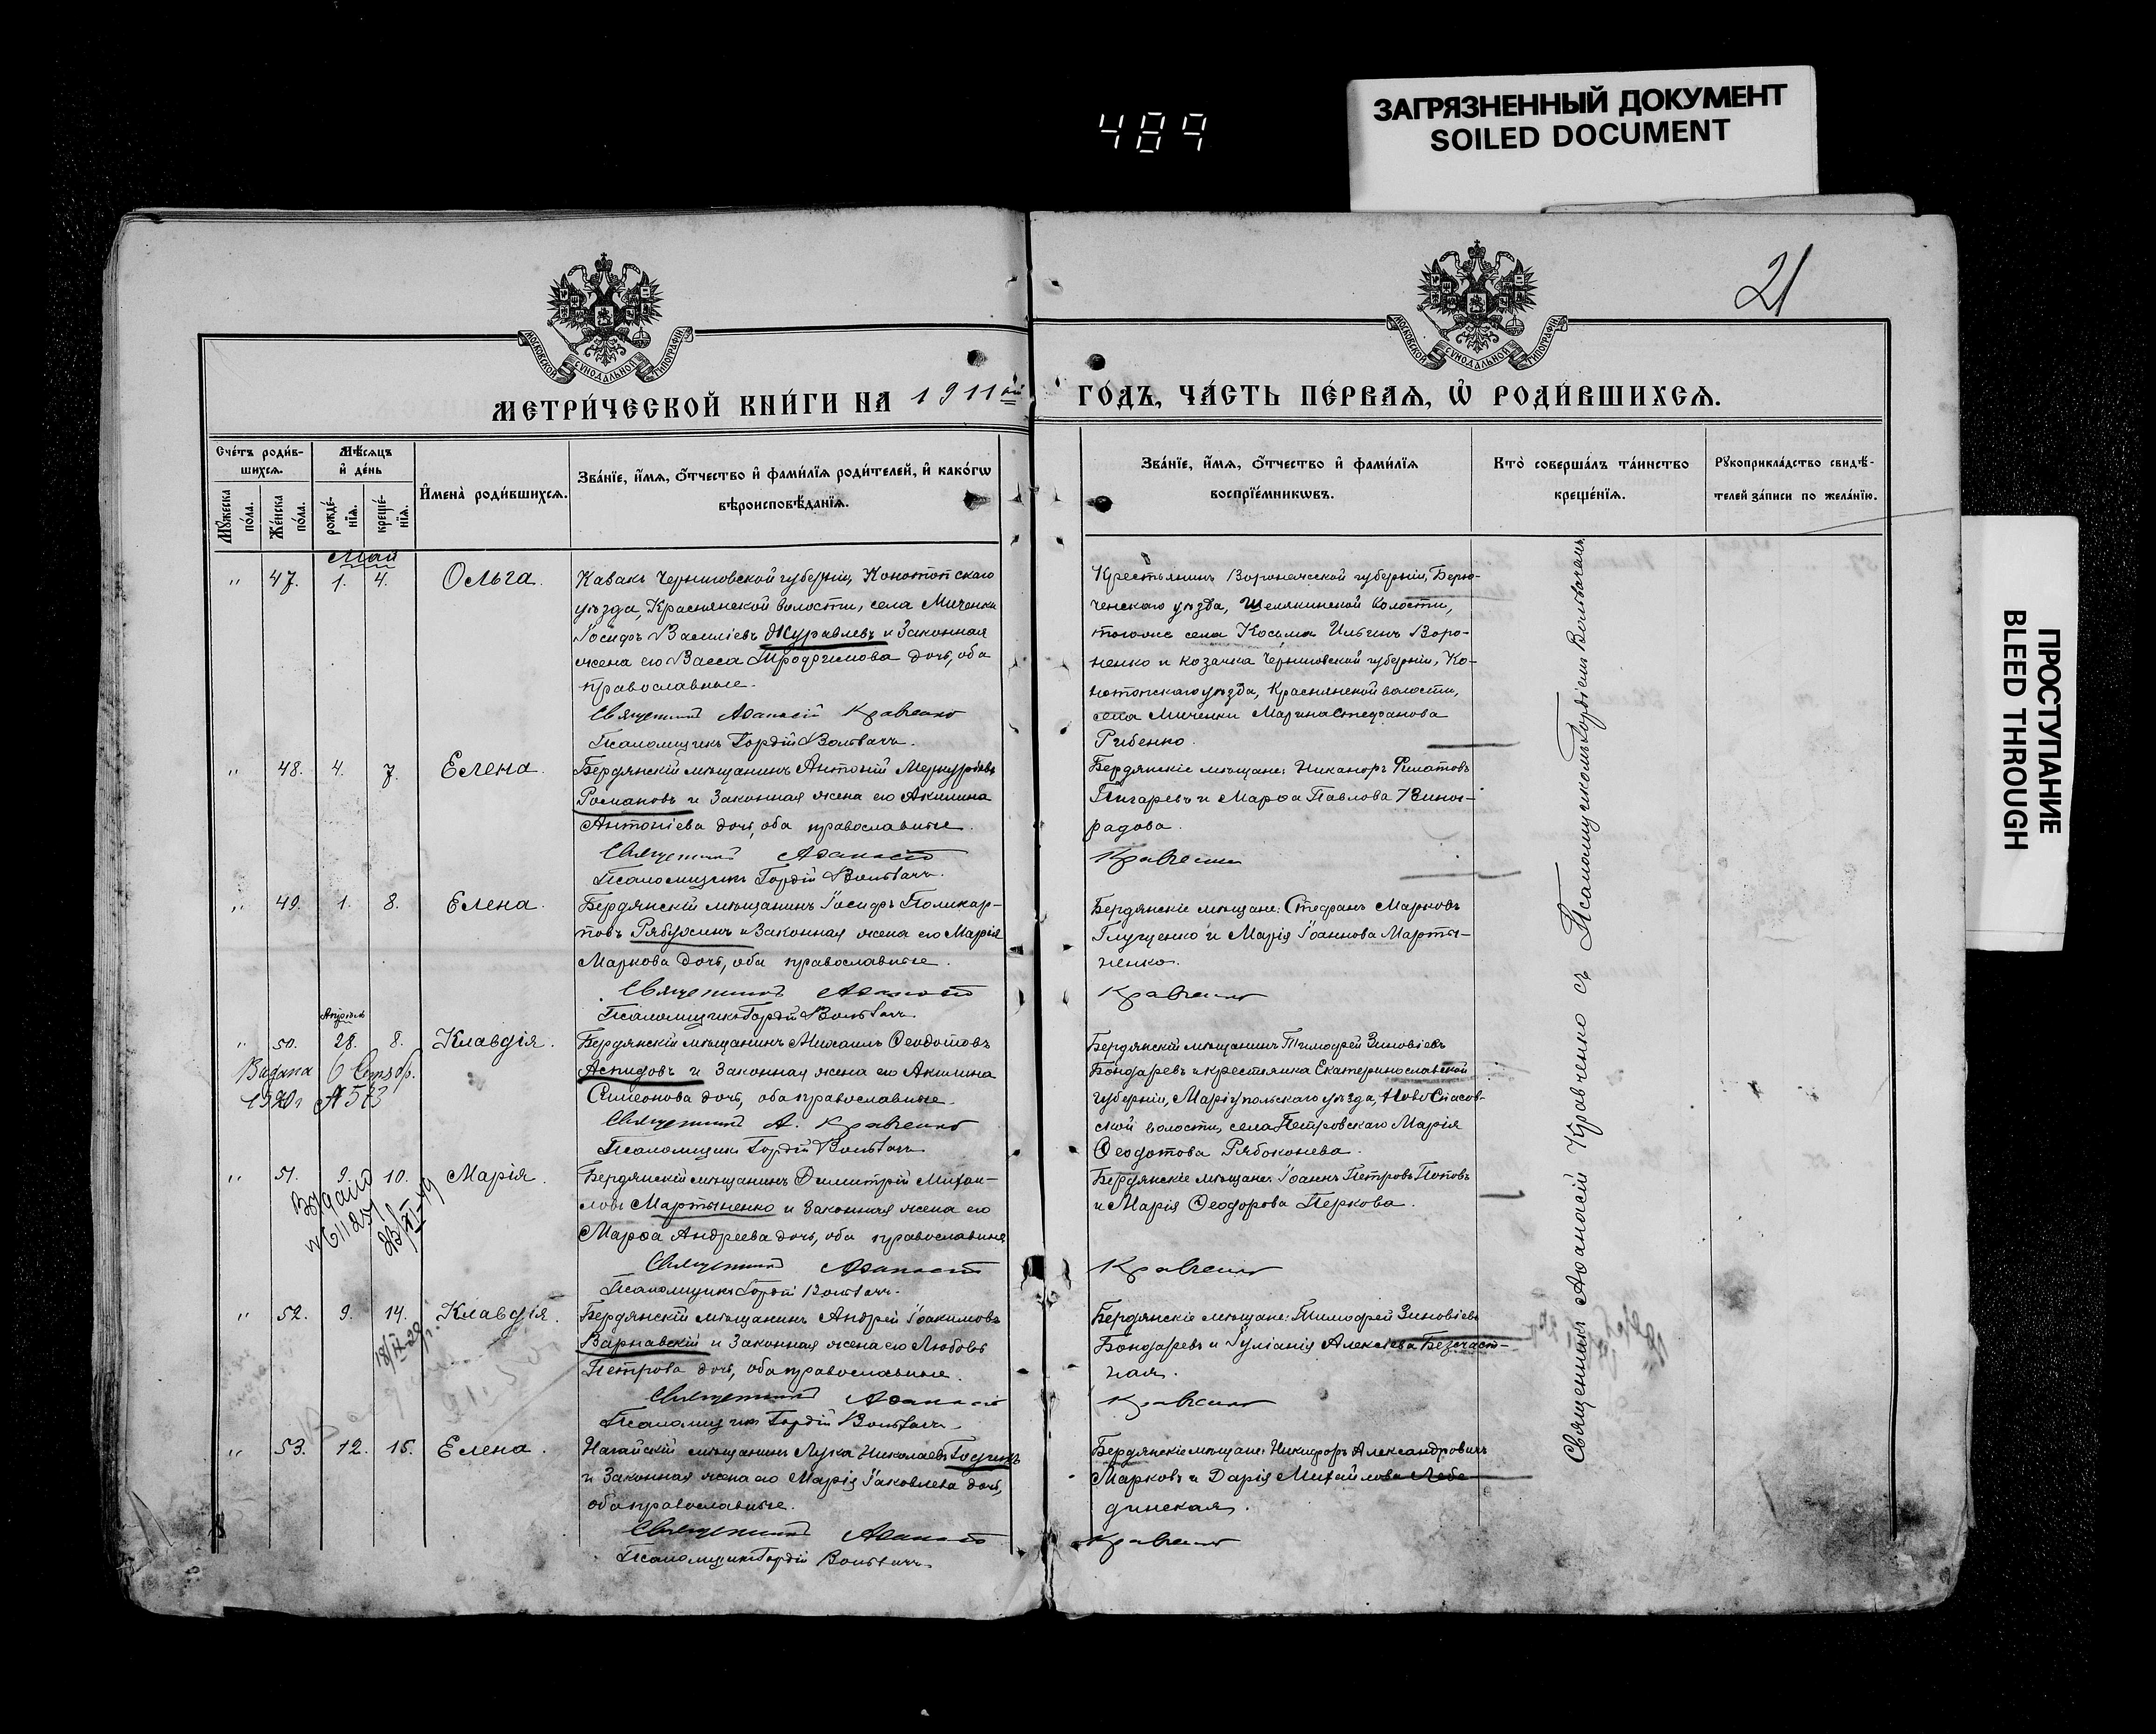 489
ЗАГРЯЗНЕННЫЙ ДОКУМЕНТ
SOILED DOCUMENT
ПРОСТУПАНИЕ
BLEED THROUGH
21
МОСКОВСКОЙ СѴНОДАЛЬНОЙ ТИПОГРАФІИ
МОСКОВСКОЙ СѴНОДАЛЬНОЙ ТИПОГРАФІИ
МЕТРИ́ЧЕСКОЙ КНИ́ГИ НА 1911 ГО́ДЪ, ЧА́СТЬ ПЕ́РВАѦ, Ѡ҆ РОДИ́ВШИХСѦ.
Сче́тъ роди́в-
шихсѧ.
Мꙋ́жеска
по́ла.
Же́нска
по́ла.
Мѣ́сѧцъ
и҆ де́нь
рожде́-
нїѧ.
креще́-
нїѧ.
И҆мена̀ роди́вшихсѧ.
Зва́нїе, и҆́мѧ, ѻ҆́тчество и҆ фами́лїѧ роди́телей, и҆ како́гѡ
вѣроисповѣ́данїѧ.
Зва́нїе, и҆́мѧ, ѻ҆́тчество и҆ фами́лїѧ
воспрїе́мникѡвъ.
Кто̀ соверша́лъ та́инство
креще́нїѧ.
Рꙋкоприкла́дство свидѣ́-
телей за́писи по жела́нїю.
Май
" 47. 1. 4. Ольга.
Казакъ Черниговской губерніи, Конотопскаго
уѣзда, Краснянской волости, села Миченки
Іосифъ Василіевъ Журавлевъ и Законная
жена его Васса Трофимова дочь, оба
православные.
Священникъ Аѳанасій Кравченко
Псаломщикъ Гордій Вольвачъ.
Крестьянинъ Воронежской губерніи, Бирю-
ченскаго уѣзда, Шелякинской волости,
тогоже села Косьма Ильинъ Воро-
ненко и козачка Черниговской губерніи, Ко-
нотопскаго уѣзда, Краснянской волости,
села Миченки Марина Стефанова
Рибенко.
" 48. 4. 7. Елена.
Бердянскій мѣщанинъ Антоній Меркуріевъ
Романовъ и Законная жена его Акилина
Антоніева дочь, оба православные.
Священникъ Аѳанасій
Псаломщикъ Гордій Вольвачъ.
Бердянскіе мѣщане: Никаноръ Филатовъ
Пигаревъ и Марѳа Павлова Виног-
радова.
Кравченко
" 49. 1. 8. Елена.
Бердянскій мѣщанинъ Іосифъ Поликар-
повъ Рябухинъ и Законная жена его Марія
Маркова дочь, оба православные.
Священникъ Аѳанасій
Псаломщикъ Гордій Вольвачъ
Бердянскіе мѣщане: Стефанъ Марковъ
Глущенко и Марія Іоаннова Марты-
ненко.
Кравченко
Апрѣль
" 50. 28. 8. Клавдія.
Видана 6
№ 573
Бердянскій мѣщанинъ Михаилъ Ѳеодотовъ
Аспидовъ и Законная жена его Акилина
Симеонова дочь, оба православные.
Священникъ А. Кравченко
Псаломщикъ Гордій Вольвачъ
Бердянскій мѣщанинъ Тимофей Зиновіевъ
Бондаревъ и крестьянка Екатеринославской
губерніи, Маріупольскаго уѣзда, Ново Спасов-
ской волости, села Петровскаго Марія
Ѳеодотова Рябоконева.
" 51. 9. 10. Марія.
Бердянскій мѣщанинъ Димитрій Михаи-
ловъ Мартыненко и Законная жена его
Марѳа Андреева дочь, оба православные
Священникъ Аѳанасій
Псаломщикъ Гордій Вольвачъ.
Бердянскіе мѣщане: Іоаннъ Петровъ Поповъ
и Марія Ѳеодорова Перкова.
Кравченко
" 52. 9. 14. Клавдія.
Бердянскій мѣщанинъ Андрей Іоакимовъ
Варнавскій и Законная жена его Любовь
Петрова дочь, оба православные.
Священникъ Аѳанасій
Псаломщикъ Гордій Вольвачъ
Бердянскіе мѣщане: Тимофей Зиновіевъ
Бондаревъ и Іуліанія Алексіева Безчаст-
ная.
Кравченко
" 53. 12. 15. Елена.
Ногайскій мѣщанинъ Лука Николаевъ
и Законная жена его Марія Іаковлева дочь,
оба православные.
Священникъ Аѳанасій
Псаломщикъ Гордій Вольвачъ.
Бердянскіе мѣщане: Никифоръ Александровичъ
Марковъ и Дарія Михайлова Лебе-
динская.
Кравченко
Священникъ Аѳанасій Кравченко съ Псаломщикомъ Гордіемъ Вольвачемъ